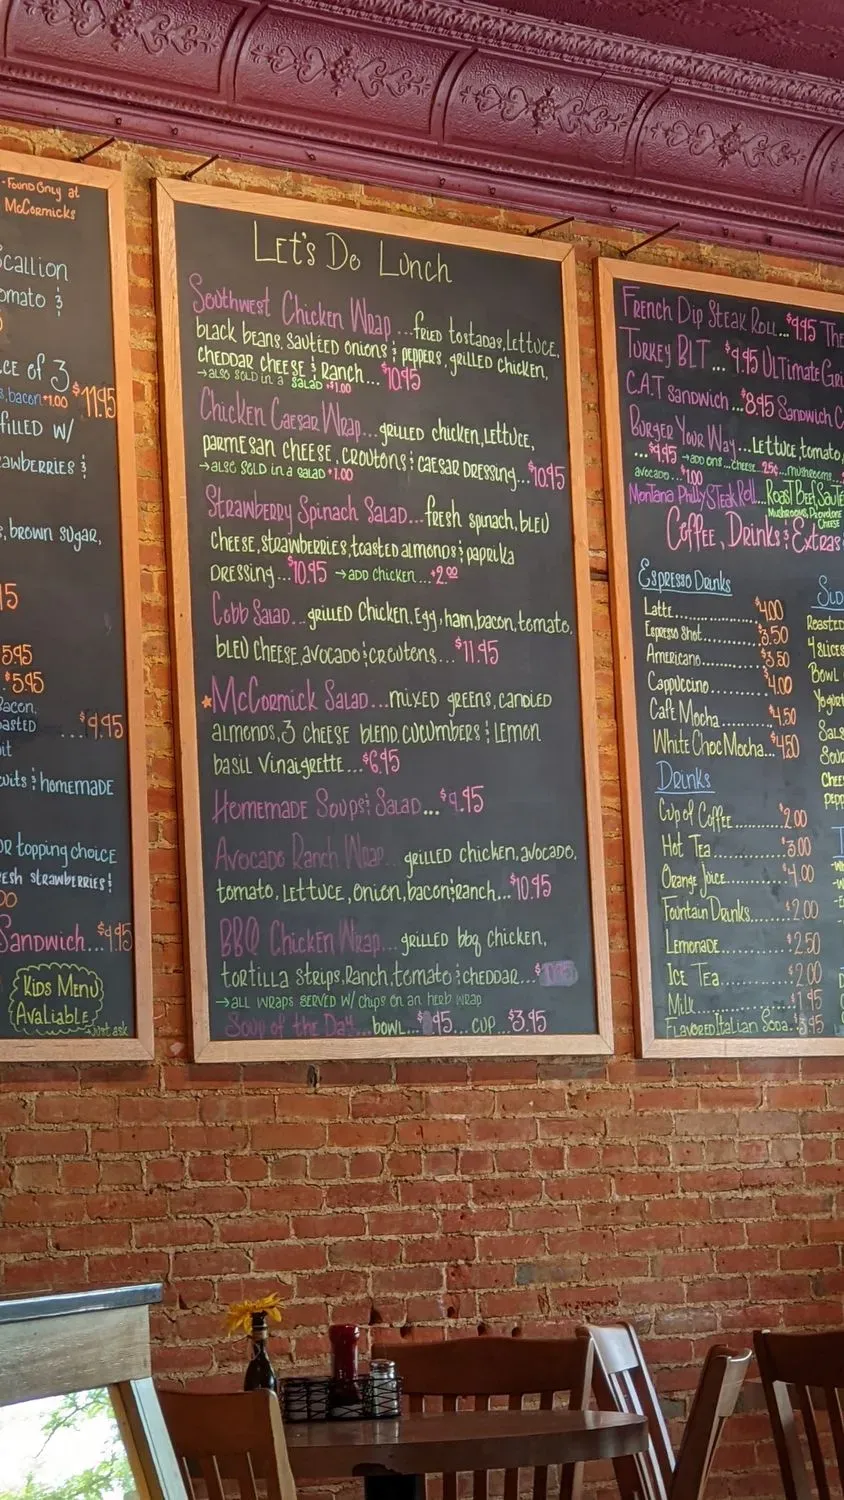 -Found Only at
McCormicks
Scallion
omato &
ce of 3
s, bacon +1.00 $11.95
filled w/
rawberries &
s, brown sugar,
5.95
$5.95
Bacon,
oasted ....$9.95
uits & homemade
or topping choice
esh strawberries &
Sandwich...$9.95
Kids Menu
Avaliable
just ask
Let's Do Lunch
Southwest Chicken Wrap ...fried tostadas, lettuce,
black beans, sautéed onions & peppers, grilled chicken,
cheddar cheese & Ranch... $10.95
→also sold in a salad +$1.00
Chicken Caesar Wrap...grilled chicken, lettuce,
parmesan cheese, croutons & caesar dressing...$10.95
→also sold in a salad +1.00
Strawberry Spinach Salad...fresh spinach, bleu
cheese, strawberries, toasted almonds & paprika
dressing...$10.95 →add chicken...+2.00
Cobb Salad...grilled chicken, egg, ham, bacon, tomato,
bleu cheese, avocado & croutons...$11.95
McCormick Salad...mixed greens, candied
almonds, 3 cheese blend, cucumbers & lemon
basil vinaigrette...$6.95
Homemade Soups & Salad...$9.95
Avocado Ranch Wrap...grilled chicken, avocado,
tomato, lettuce, onion, bacon & ranch...$10.95
BBQ Chicken Wrap...grilled bbq chicken,
tortilla strips, Ranch, tomato & cheddar...
→all wraps served w/ chips on an herb wrap
Soup of the Day...bowl... cup...$3.95
French Dip Steak Roll...$9.95 The
Turkey BLT...$9.95 Ultimate Gri
C.A.T Sandwich...$8.95 Sandwich C
Burger Your Way...Lettuce, tomato,
...$9.95 →add ons...cheese .25¢...mushrooms...
avocado...$1.00
Montana Philly Steak Roll...Roast Beef, Saute
Mushrooms, Provolone
Cheese
Coffee, Drinks & Extras
Espresso Drinks
Latte..........$4.00
Espresso Shot..........$3.50
Americano..........$3.50
Cappuccino..........$4.00
Café Mocha..........$4.50
White Choc Mocha...$4.50
Drinks
Cup of Coffee..........$2.00
Hot Tea..........$3.00
Orange Juice..........$4.00
Fountain Drinks..........$2.00
Lemonade..........$2.50
Ice Tea..........$2.00
Milk..........$1.95
Flavored Italian Soda..$3.95
Sid
Roasted
4 slices
Bowl
Yogurt
Sals
Sou
Chee
pepp